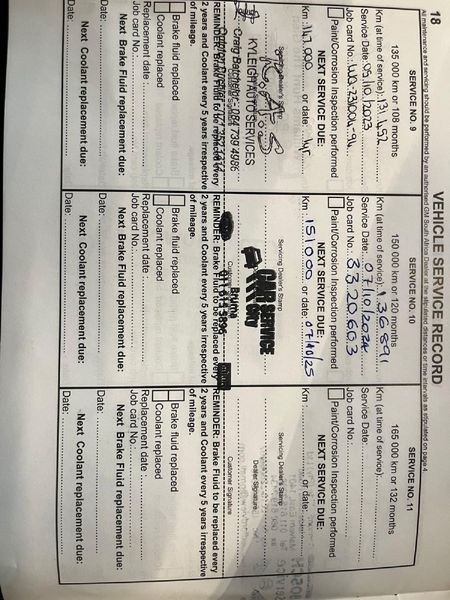 18
VEHICLE SERVICE RECORD
All maintenance and servicing should be performed by an authorised GM South Africa Dealer at the stipulated distances or time intervals as stipulated on page 4.
SERVICE NO. 9
135 000 km or 108 months
Km (at time of service): 131,452
Service Date: 05/10/2023
Job card No.:
Paint/Corrosion Inspection performed
NEXT SERVICE DUE:
Km 147,000 or date: 1yr
KYLEIGH AUTO SERVICES
Craig Batchelor 084 739 4986
REMINDER: Brake Fluid to be replaced every
2 years and Coolant every 5 years irrespective
of mileage.
Brake fluid replaced
Coolant replaced
Replacement date:
Job card No.:
Next Brake Fluid replacement due:
Date:
Next Coolant replacement due:
Date:
SERVICE NO. 10
150 000 km or 120 months
Km (at time of service): 136891
Service Date: 07/10/2024
Job card No.: 3320603
Paint/Corrosion Inspection performed
NEXT SERVICE DUE:
Km 151000 or date: 07/10/25
Servicing Dealer's Stamp
CAR SERVICE
CITY
Bruma
REMINDER: Brake Fluid to be replaced every
2 years and Coolant every 5 years irrespective
of mileage.
Brake fluid replaced
Coolant replaced
Replacement date:
Job card No.:
Next Brake Fluid replacement due:
Date:
Next Coolant replacement due:
Date:
SERVICE NO. 11
165 000 km or 132 months
Km (at time of service):
Service Date:
Job card No.:
Paint/Corrosion Inspection performed
NEXT SERVICE DUE:
Km or date:
Servicing Dealer's Stamp
Dealer Signature
Customer Signature
REMINDER: Brake Fluid to be replaced every
2 years and Coolant every 5 years irrespective
of mileage.
Brake fluid replaced
Coolant replaced
Replacement date:
Job card No.:
Next Brake Fluid replacement due:
Date:
Next Coolant replacement due:
Date: